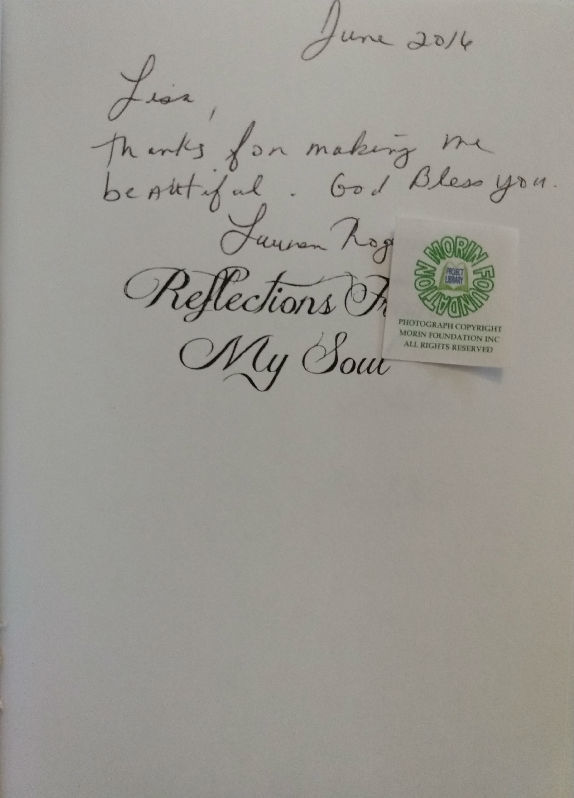 June 2016
Lisa,
Thanks for making me
beautiful. God Bless you.
Lauren Rog
Reflections Fr
My Soul
MORIN FOUNDATION
PROJECT
LIBRARY
PHOTOGRAPH COPYRIGHT
MORIN FOUNDATION INC
ALL RIGHTS RESERVED